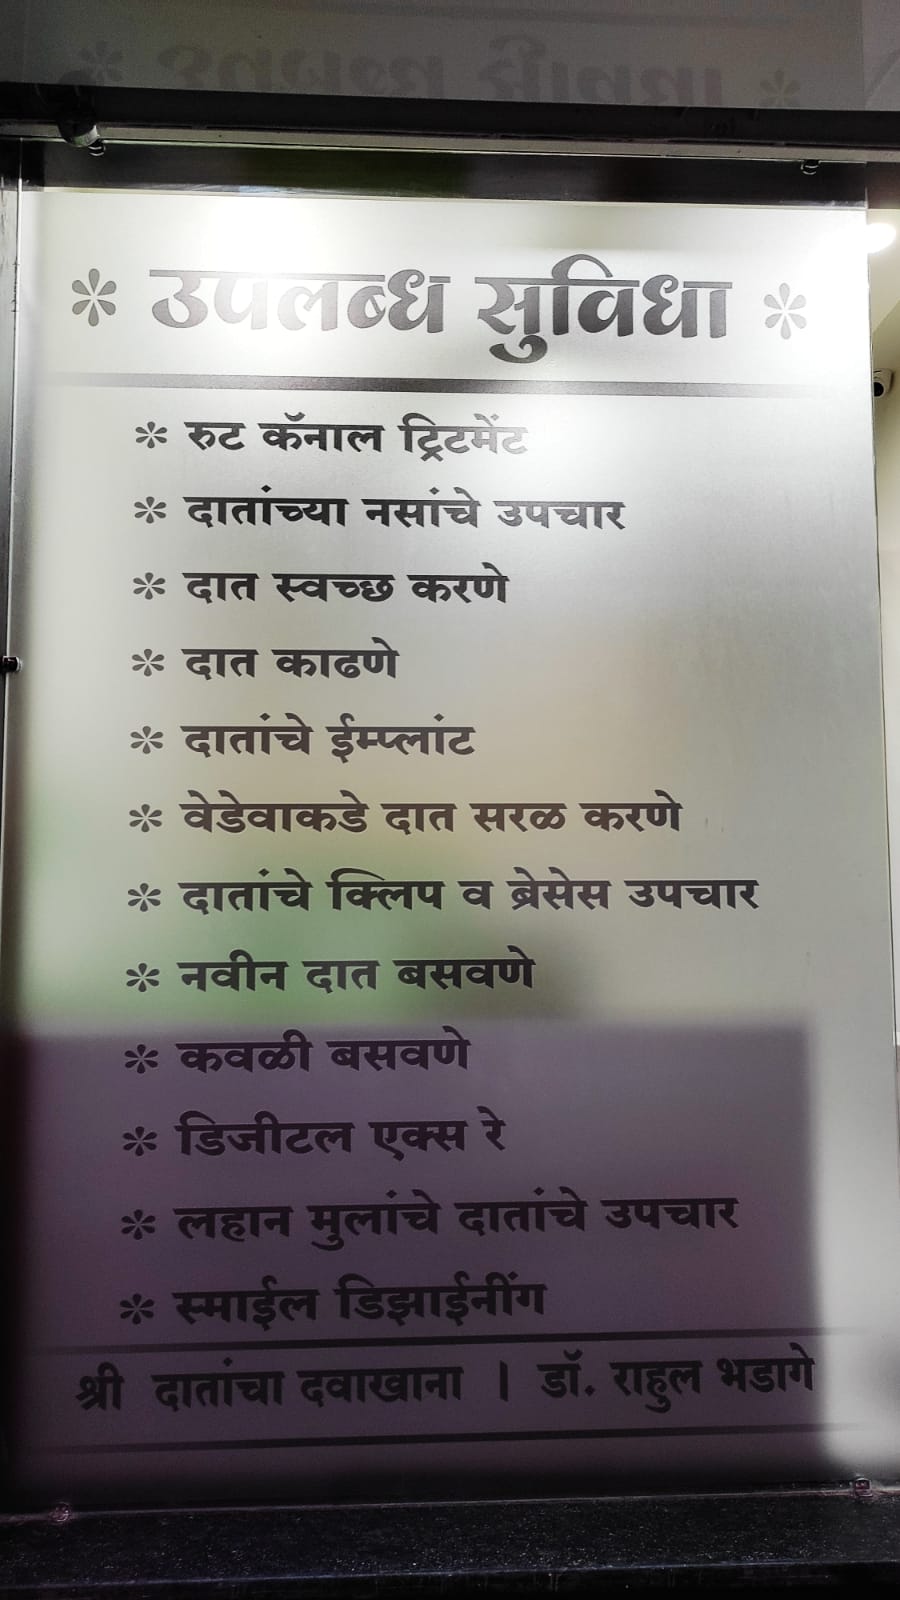 * उपलब्ध सुविधा *
* रुट कॅनाल ट्रिटमेंट
* दातांच्या नसांचे उपचार
* दात स्वच्छ करणे
* दात काढणे
* दातांचे ईम्प्लांट
* वेडेवाकडे दात सरळ करणे
* दातांचे क्लिप व ब्रेसेस उपचार
* नवीन दात बसवणे
* कवळी बसवणे
* डिजीटल एक्स रे
* लहान मुलांचे दातांचे उपचार
* स्माईल डिझाईनींग
श्री दातांचा दवाखाना | डॉ. राहुल भडागे